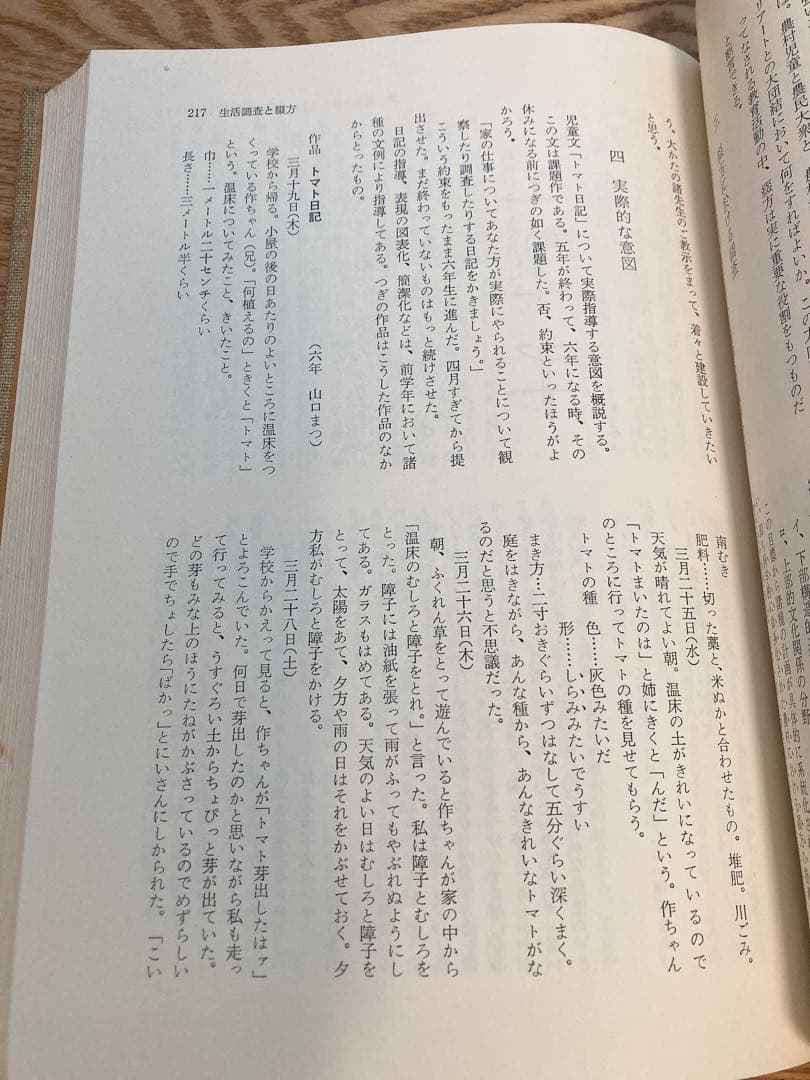 217　生活調査と綴方
う。大かたの諸先生のご教示をまって、着々と建設していきたい
と思う。
四　実際的な意図
児童文「トマト日記」について実際指導する意図を概説する。
この文は課題作である。五年が終わって、六年になる時、その
休みになる前につぎの如く課題した。否、約束といったほうがよ
かろう。
「家の仕事についてあなた方が実際にやられることについて観
察したり調査したりする日記をかきましょう。」
こういう約束をもったまま六年生に進んだ。四月すぎてから提
出させた。まだ終わっていないものはもっと続けさせた。
日記の指導、表現の図表化、簡潔化などは、前学年において諸
種の文例により指導してある。つぎの作品はこうした作品のなか
からとったもの。
作品　トマト日記
（六年　山口まつ）
三月十九日（木）
学校から帰る。小屋の後の日あたりのよいところに温床をつ
くっている作ちゃん（兄）。「何植えるの」ときくと「トマト」
という。温床についてみたこと、きいたこと。
巾……一メートル二十センチくらい
長さ……三メートル半くらい
南むき
肥料……切った藁と、米ぬかと合わせたもの。堆肥。川ごみ。
三月二十五日（水）
天気が晴れてよい朝。温床の土がきれいになっているので
「トマトまいたのは」と姉にきくと「んだ」という。作ちゃん
のところに行ってトマトの種を見せてもらう。
トマトの種　色……灰色みたいだ
形……しらみみたいでうすい
まき方…二寸おきぐらいずつはなして五分ぐらい深くまく。
庭をはきながら、あんな種から、あんなきれいなトマトがな
るのだと思うと不思議だった。
三月二十六日（木）
朝、ふくれん草をとって遊んでいると作ちゃんが家の中から
「温床のむしろと障子をとれ。」と言った。私は障子とむしろを
とった。障子には油紙を張って雨がふってもやぶれぬようにし
てある。ガラスもはめてある。天気のよい日はむしろと障子を
とって、太陽をあて、夕方や雨の日はそれをかぶせておく。夕
方私がむしろと障子をかける。
三月二十八日（土）
学校からかえって見ると、作ちゃんが「トマト芽出したはァ」
とよろこんでいた。何日で芽出したのかと思いながら私も走っ
て行ってみると、うすぐろい土からちょぴっと芽が出ていた。
どの芽もみな上のほうにたねがかぶさっているのでめずらしい
ので手でちょしたら「ばかっ」とにいさんにしかられた。「こい